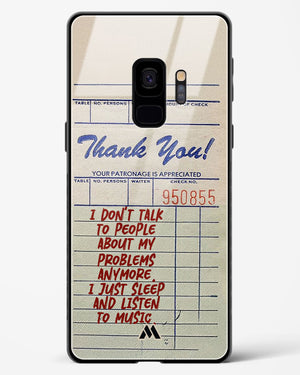 TABLE NO. PERSONS CHECK
Thank You!
YOUR PATRONAGE IS APPRECIATED
TABLE NO. PERSONS WAITER CHECK NO.
950855
I DON'T TALK
TO PEOPLE
ABOUT MY
PROBLEMS
ANYMORE.
I JUST SLEEP
AND LISTEN
TO MUSIC